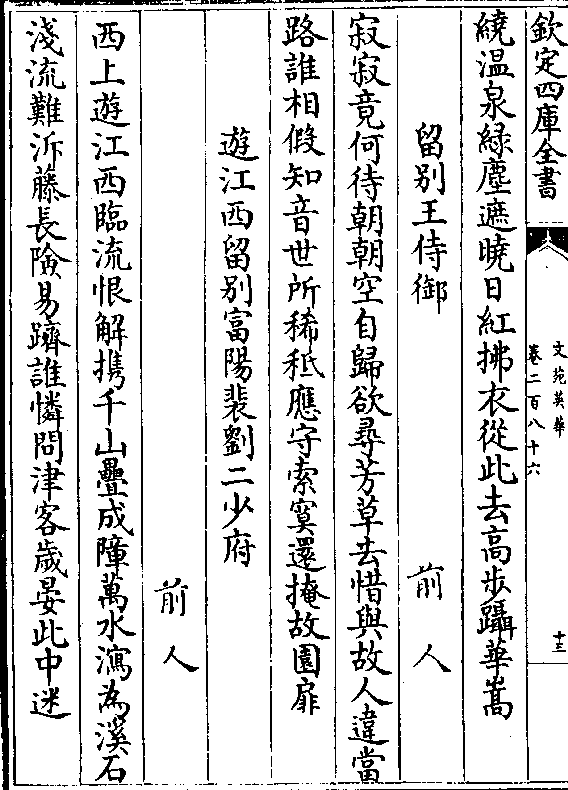 欽定四庫全書
文苑英華
卷二百八十六
十三
繞温泉緑塵遮曉日紅拂衣從此去高步躡華嵩
留别王侍御
前人
寂寂竟何待朝朝空自歸欲尋芳草去惜與故人違當
路誰相假知音世所稀秪應守索寞還掩故園扉
遊江西留别富陽裴劉二少府
前人
西上遊江西臨流恨解携千山疊成障萬水瀉為溪石
淺流難泝藤長險易躋誰憐問津客歲晏此中迷